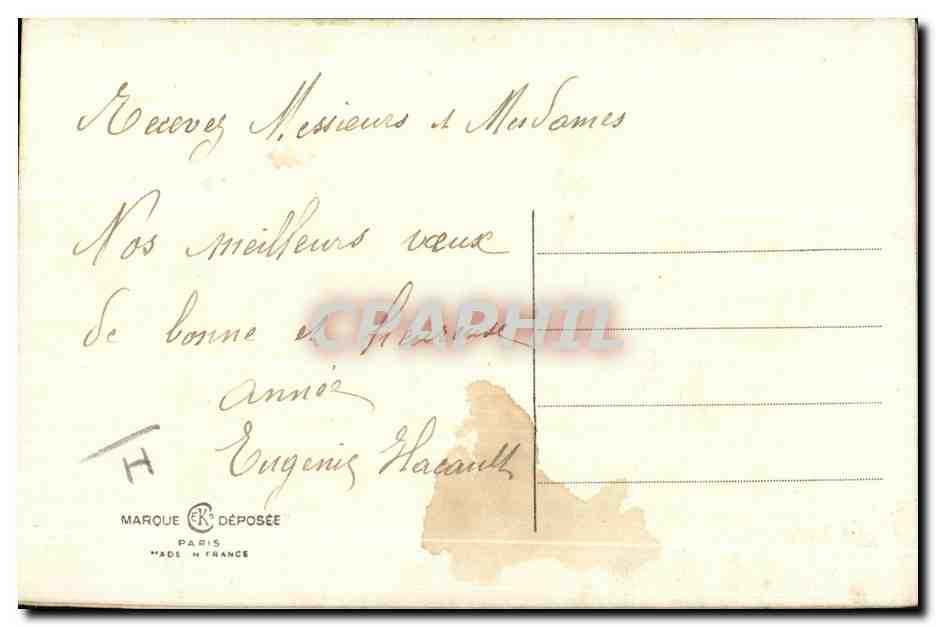 Recevez Messieurs et Mesdames
Nos meilleurs vœux
de bonne et heureuse
année
Eugénie Hacault
CPAPHIL
H
MARQUE EKD DÉPOSÉE
PARIS
MADE IN FRANCE